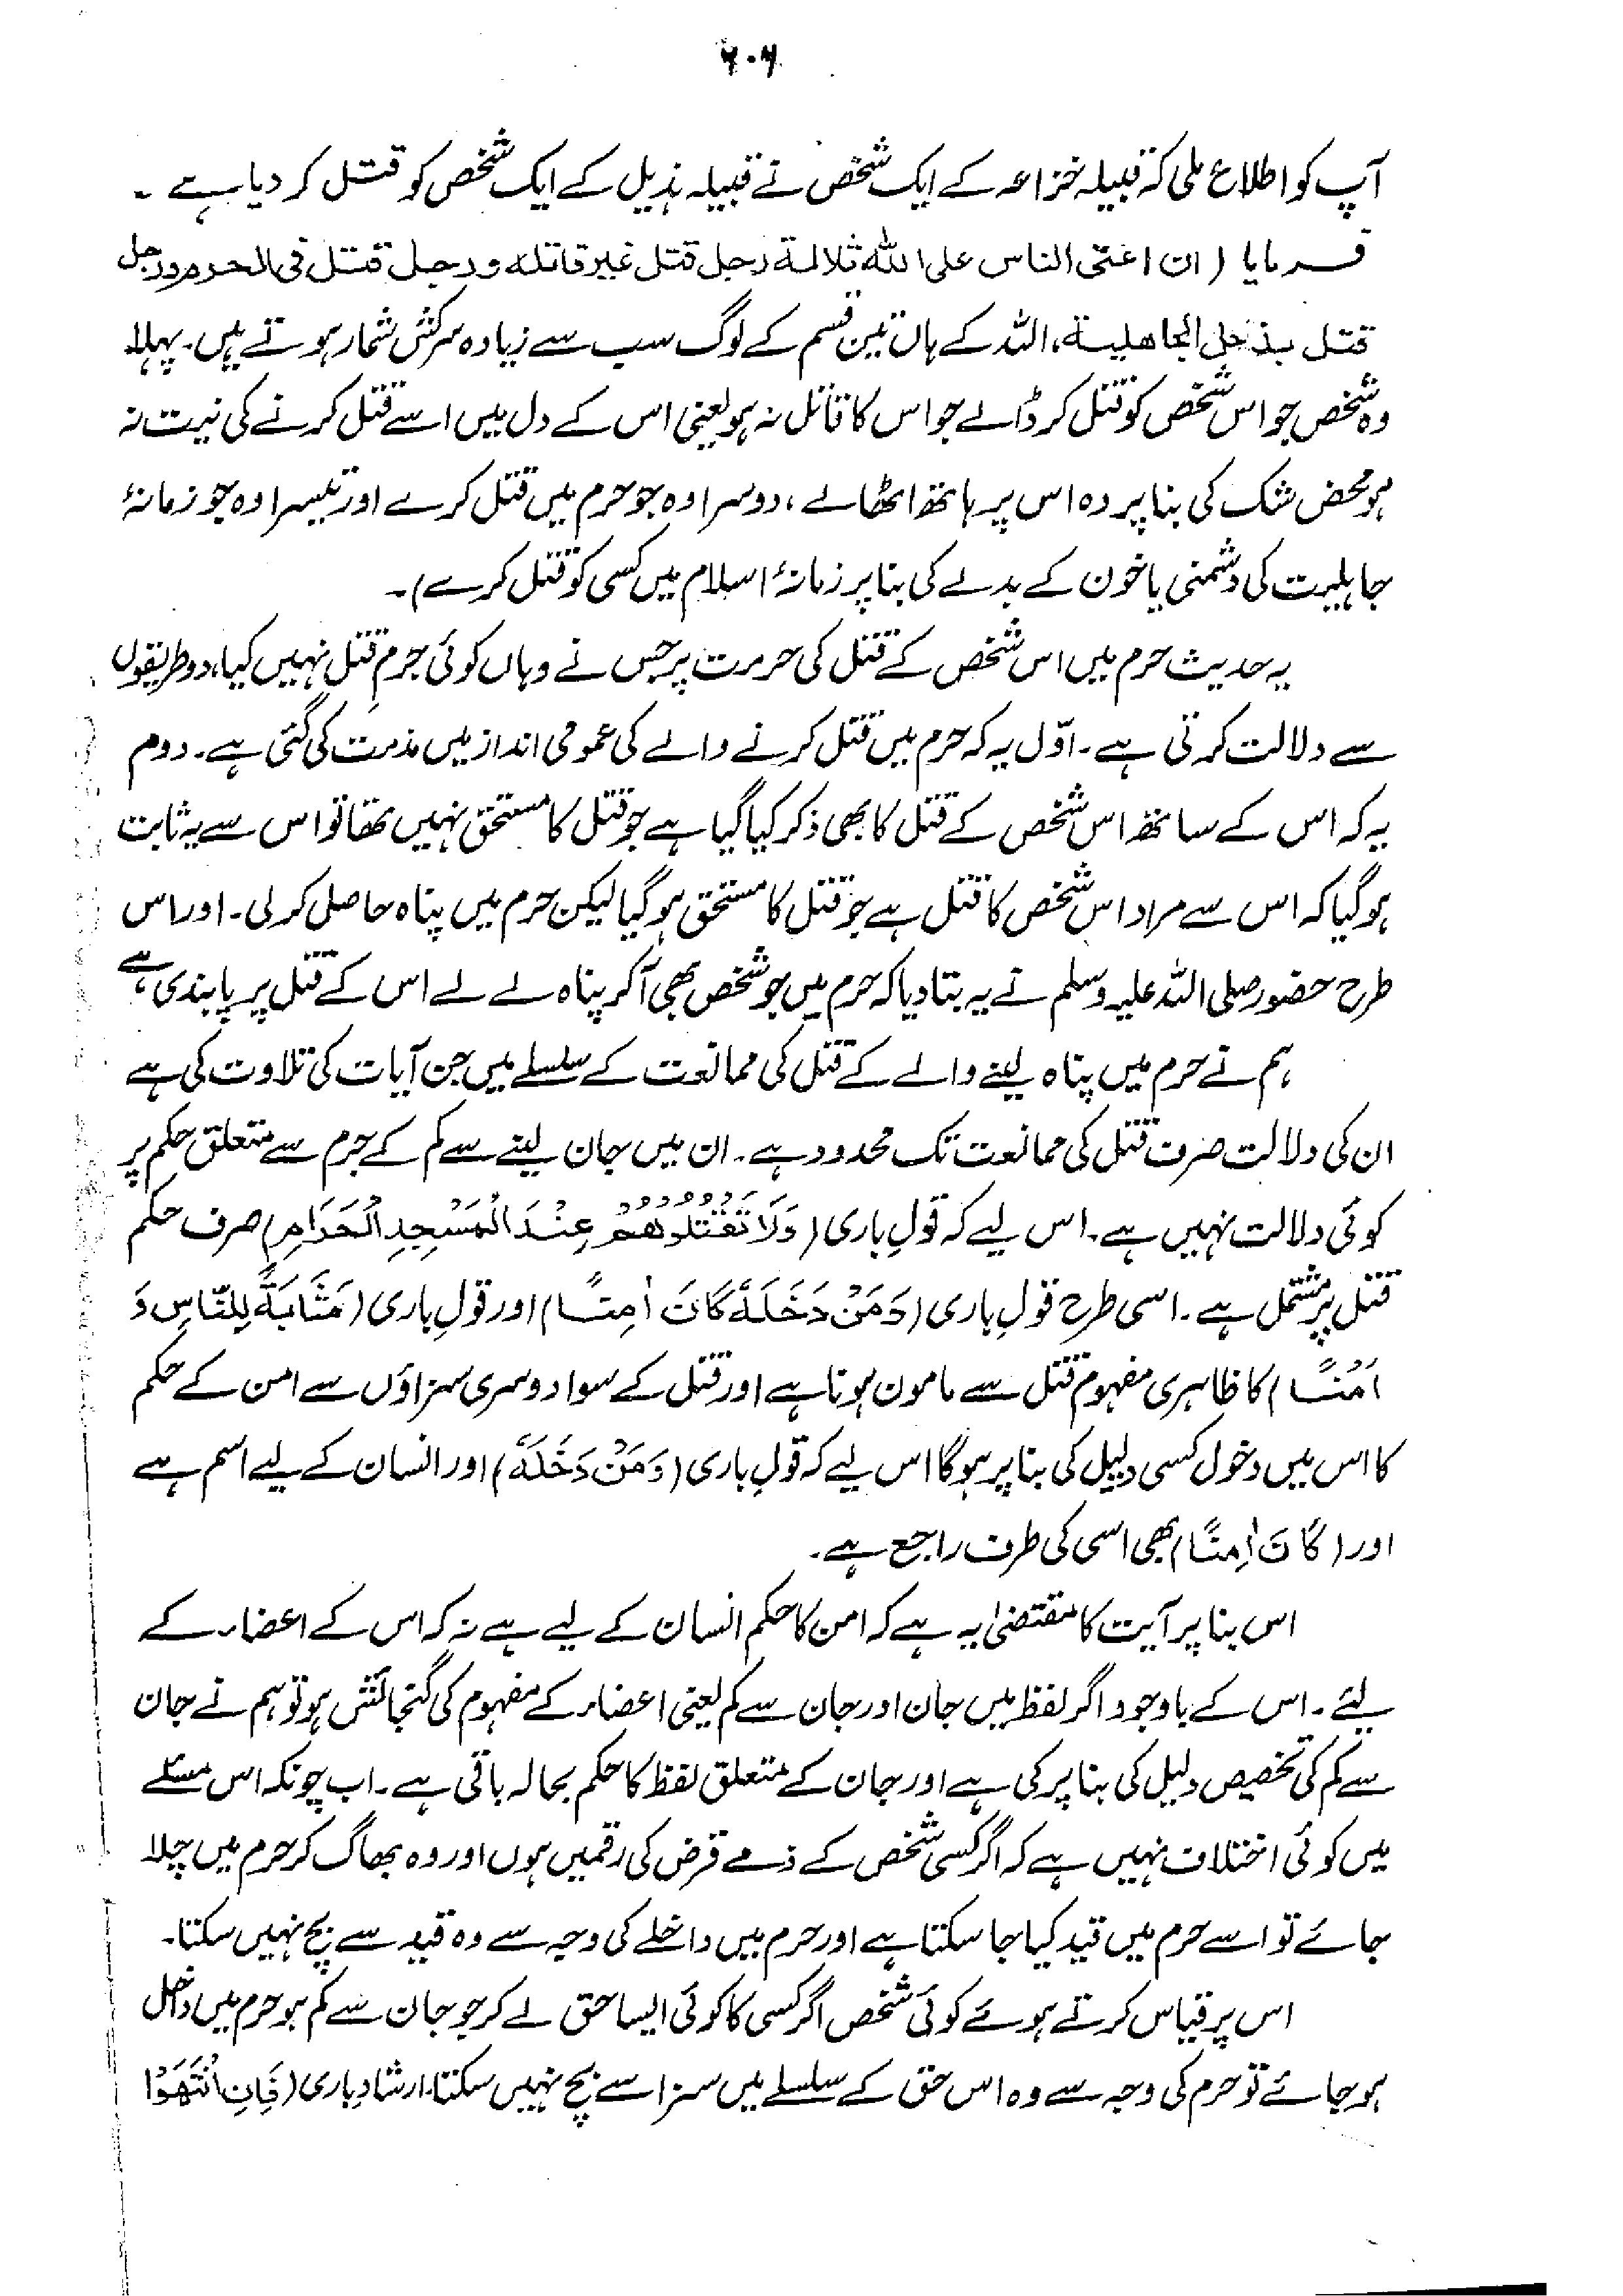 ۶۰۶
آپ کو اطلاع ملی کہ قبیلہ خزاعہ کے ایک شخص نے قبیلہ ہذیل کے ایک شخص کو قتل کر دیا ہے ۔
فرمایا (ان اعتی الناس علی اللہ ثلاثة رجل قتل غیر قاتله و رجل قتل فی الحرم و رجل
قتل بذحل الجاهلیة، اللہ کے ہاں تین قسم کے لوگ سب سے زیادہ سرکش شمار ہوتے ہیں۔ پہلا
وہ شخص جو اس شخص کو قتل کر ڈالے جو اس کا قاتل نہ ہو یعنی اس کے دل میں اسے قتل کرنے کی نیت نہ
ہو محض شک کی بنا پر وہ اس پر ہاتھ اٹھا لے، دوسرا وہ جو حرم میں قتل کرے اور تیسرا وہ جو زمانۂ
جاہلیت کی دشمنی یا خون کے بدلے کی بنا پر زمانۂ اسلام میں کسی کو قتل کرے)۔
یہ حدیث حرم میں اس شخص کے قتل کی حرمت پر جس نے وہاں کوئی جرمِ قتل نہیں کیا، دو طریقوں
سے دلالت کرتی ہے۔ اوّل یہ کہ حرم میں قتل کرنے والے کی عمومی انداز میں مذمت کی گئی ہے۔ دوم
یہ کہ اس کے ساتھ اس شخص کے قتل کا بھی ذکر کیا گیا ہے جو قتل کا مستحق نہیں تھا تو اس سے یہ ثابت
ہو گیا کہ اس سے مراد اس شخص کا قتل ہے جو قتل کا مستحق ہو گیا لیکن حرم میں پناہ حاصل کر لی۔ اور اس
طرح حضور صلی اللہ علیہ وسلم نے یہ بتا دیا کہ حرم میں جو شخص بھی آ کر پناہ لے لے اس کے قتل پر پابندی ہے
ہم نے حرم میں پناہ لینے والے کے قتل کی ممانعت کے سلسلے میں جن آیات کی تلاوت کی ہے
ان کی دلالت صرف قتل کی ممانعت تک محدود ہے۔ ان میں جان لینے سے کم کے جرم سے متعلق حکم پر
کوئی دلالت نہیں ہے۔ اس لیے کہ قولِ باری (وَلَا تَقْتُلُوْهُمْ عِنْدَ الْمَسْجِدِ الْحَرَامِ) صرف حکم
قتل پر مشتمل ہے۔ اسی طرح قولِ باری (وَمَنْ دَخَلَهٗ كَانَ اٰمِنًا) اور قولِ باری (مَثَابَةً لِّلنَّاسِ وَ
اَمْنًا) کا ظاہری مفہوم قتل سے مامون ہونا ہے اور قتل کے سوا دوسری سزاؤں سے امن کے حکم
کا اس میں دخول کسی دلیل کی بنا پر ہوگا اس لیے کہ قولِ باری (وَمَنْ دَخَلَهٗ) اور انسان کے لیے اسم ہے
اور (كَانَ اٰمِنًا) بھی اسی کی طرف راجع ہے۔
اس بنا پر آیت کا مقتضیٰ یہ ہے کہ امن کا حکم انسان کے لیے ہے نہ کہ اس کے اعضاء کے
لئے۔ اس کے باوجود اگر لفظ میں جان اور جان سے کم یعنی اعضاء کے مفہوم کی گنجائش ہو تو ہم نے جان
سے کم کی تخصیص دلیل کی بنا پر کی ہے اور جان کے متعلق لفظ کا حکم بحالہ باقی ہے۔ اب چونکہ اس مسئلے
میں کوئی اختلاف نہیں ہے کہ اگر کسی شخص کے ذمے قرض کی رقمیں ہوں اور وہ بھاگ کر حرم میں چلا
جائے تو اسے حرم میں قید کیا جا سکتا ہے اور حرم میں داخلے کی وجہ سے وہ قید سے بچ نہیں سکتا۔
اس پر قیاس کرتے ہوئے کوئی شخص اگر کسی کا کوئی ایسا حق لے کر جو جان سے کم ہو حرم میں داخل
ہو جائے تو حرم کی وجہ سے وہ اس حق کے سلسلے میں سزا سے بچ نہیں سکتا۔ ارشادِ باری (فَاِنِ انْتَهَوْا